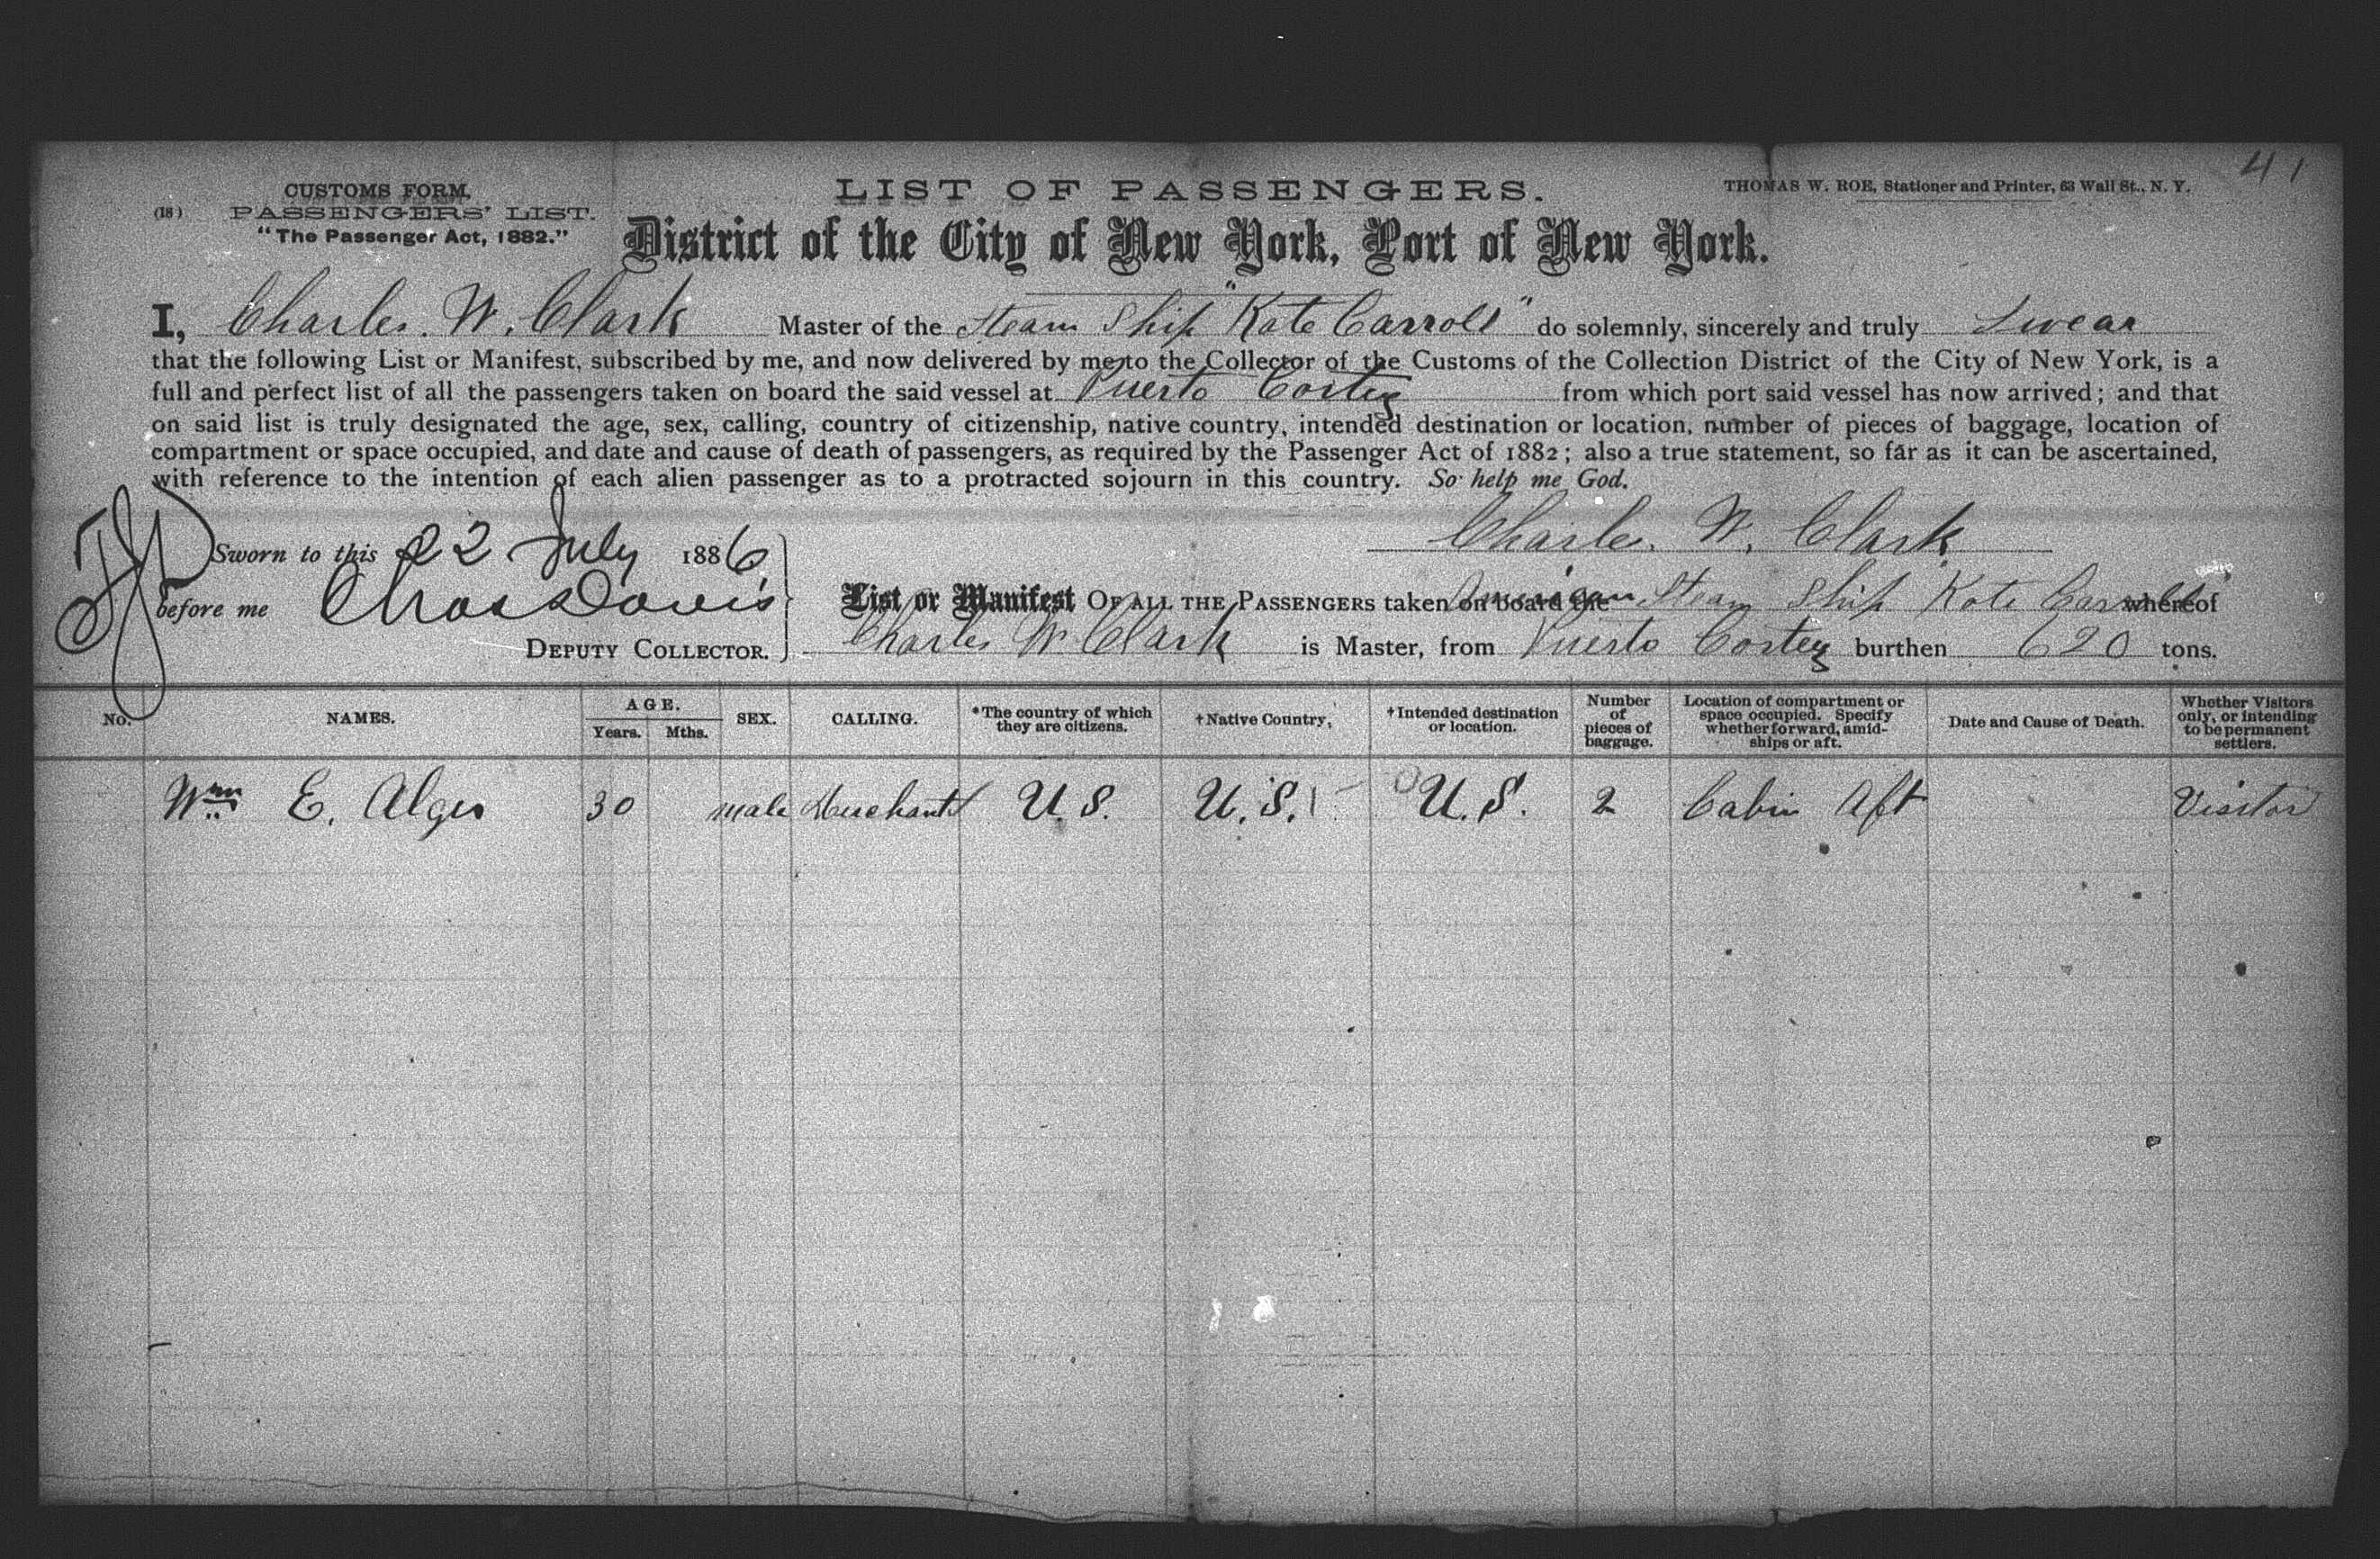 41
CUSTOMS FORM.
(18) PASSENGERS' LIST.
"The Passenger Act, 1882."
LIST OF PASSENGERS.
THOMAS W. ROE, Stationer and Printer, 63 Wall St., N. Y.
District of the City of New York, Port of New York.
I, Charles. W. Clark Master of the Steam Ship "Kate Carroll" do solemnly, sincerely and truly Swear
that the following List or Manifest, subscribed by me, and now delivered by me to the Collector of the Customs of the Collection District of the City of New York, is a
full and perfect list of all the passengers taken on board the said vessel at Puerto Cortez from which port said vessel has now arrived; and that
on said list is truly designated the age, sex, calling, country of citizenship, native country, intended destination or location, number of pieces of baggage, location of
compartment or space occupied, and date and cause of death of passengers, as required by the Passenger Act of 1882; also a true statement, so far as it can be ascertained,
with reference to the intention of each alien passenger as to a protracted sojourn in this country. So help me God.
Charles. W. Clark
Sworn to this 22 July 1886,
before me Chas Davis
DEPUTY COLLECTOR.
List or Manifest OF ALL THE PASSENGERS taken on board the American Steam Ship Kate Carroll whereof
Charles W Clark is Master, from Puerto Cortez burthen 620 tons.
No. NAMES. AGE. Years. Mths. SEX. CALLING. *The country of which they are citizens. †Native Country. †Intended destination or location. Number of pieces of baggage. Location of compartment or space occupied. Specify whether forward, amidships or aft. Date and Cause of Death. Whether Visitors only, or intending to be permanent settlers.
Wm E. Alger 30 male Merchant U.S. U.S. U.S. 2 Cabin Aft Visitor